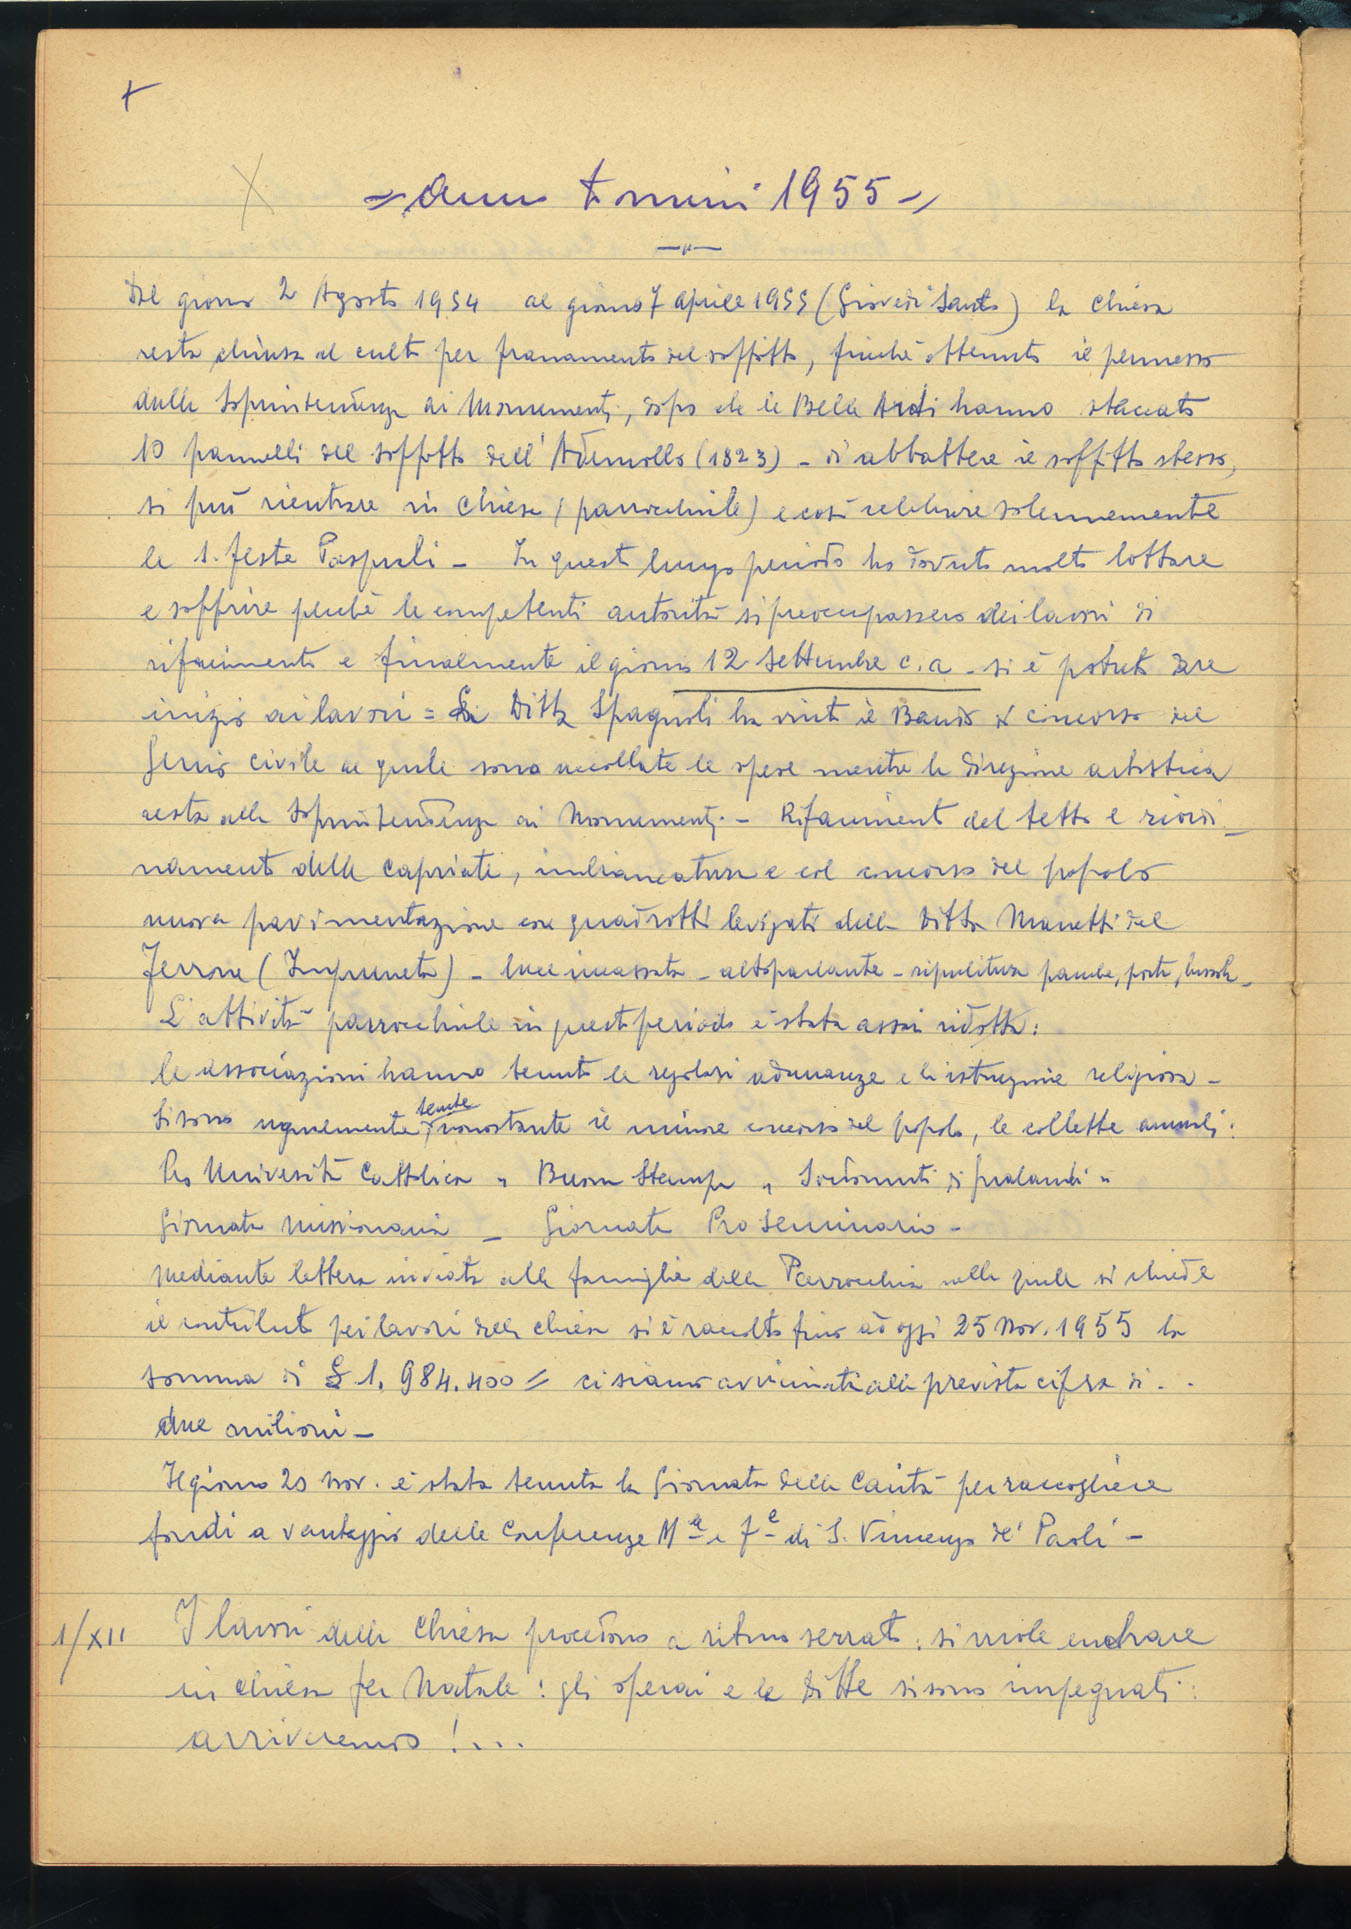 +
X
= Anno Domini 1955 =
Dal giorno 2 Agosto 1954 al giorno 7 Aprile 1955 (Giovedì Santo) la Chiesa
resta chiusa al culto per franamento del soffitto, finché ottenuto il permesso
dalla Soprintendenza ai Monumenti, dopo che le Belle Arti hanno staccato
10 pannelli del soffitto dell'Ademollo (1823) - di abbattere il soffitto stesso,
si può rientrare in Chiesa (parrocchiale) e così celebrare solennemente
le S. Feste Pasquali - In questo lungo periodo ho dovuto molto lottare
e soffrire perché le competenti autorità si preoccupassero dei lavori di
rifacimento e finalmente il giorno 12 Settembre c.a - si è potuto dare
inizio ai lavori = La Ditta Spagnoli ha vinto il Bando di concorso del
Genio civile al quale sono accollate le spese mentre la direzione artistica
resta alla Soprintendenza ai Monumenti. - Rifacimento del tetto e riordi-
namento delle capriate, imbiancatura e col concorso del popolo
nuova pavimentazione con quadrotti levigati della Ditta Manetti del
Ferrone (Impruneta) - luce incassata - altoparlante - ripulitura panche, porte, bussola -
L'attività parrocchiale in questo periodo è stata assai ridotta:
le associazioni hanno tenuto le regolari adunanze e la istruzione religiosa -
Si sono ugualmente tenute, nonostante il minore concorso del popolo, le collette annuali:
Pro Università Cattolica " Buona Stampa "
Giornata Missionaria - Giornata Pro Seminario -
Mediante lettera inviata alle famiglie della Parrocchia nella quale si chiede
il contributo pei lavori della chiesa si è raccolto fino ad oggi 25 Nov. 1955 la
somma di £ 1.984.400 = ci siamo avvicinati alla prevista cifra di . .
due milioni -
Il giorno 20 Nov. è stata tenuta la Giornata della Carità per raccogliere
fondi a vantaggio delle Conferenze M.e e F.e di S. Vincenzo de' Paoli -
1/XII I lavori della Chiesa procedono a ritmo serrato: si vuole entrare
in chiesa per Natale: gli operai e le Ditte si sono impegnati:
arriveremo!...